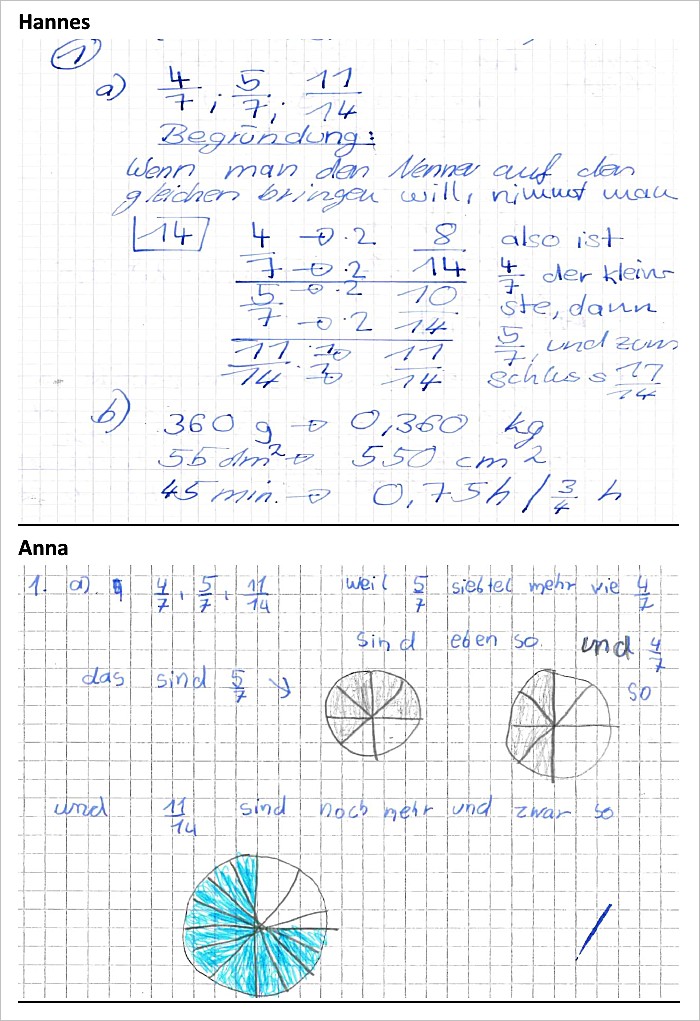 Hannes
1
a) 4/7 ; 5/7 ; 11/14
Begründung:
Wenn man den Nenner auf den
gleichen bringen will, nimmt man
14 4/7 → ·2 → ·2 8/14 also ist 4/7 der klein-
5/7 → ·2 → ·2 10/14 ste, dann 5/7, und zum
11/14 11/14 schluss 11/14
b) 360 g → 0,360 kg
55 dm² → 550 cm²
45 min. → 0,75h / 3/4 h
Anna
1. a). 4/7, 5/7, 11/14 weil 5/7 siebtel mehr wie 4/7
sind eben so. und 4/7
das sind 5/7 ↘ so
und 11/14 sind noch mehr und zwar so